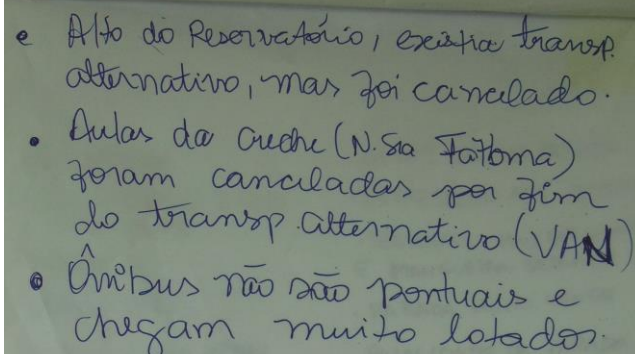 • Alto do Reservatório, existia transp.
alternativo, mas foi cancelado.
• Aulas da creche (N. Sra Fátima)
foram canceladas por fim
do transp. alternativo (VAN)
• Ônibus não são pontuais e
chegam muito lotados.